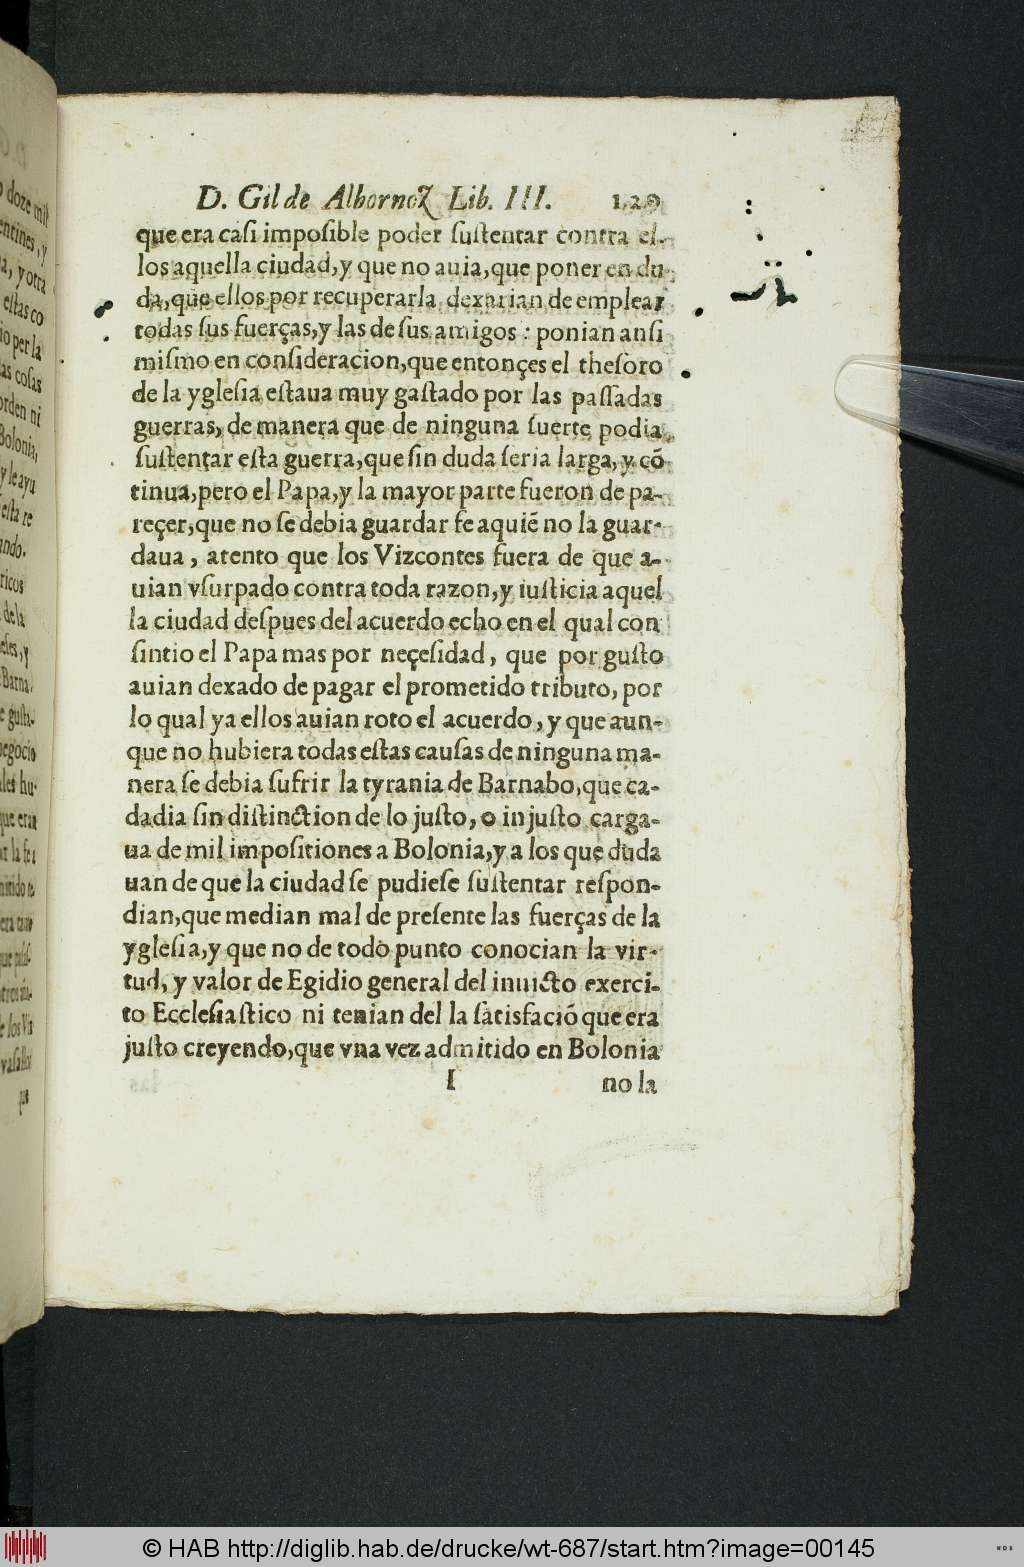 D. Gil de Albornoz Lib. III. 129
que era casi imposible poder ſuſtentar contra el-
los aquella ciudad, y que no auia, que poner en du
da, que ellos por recuperarla dexarian de emplear
todas ſus fuerças, y las de ſus amigos : ponian anſi
miſmo en conſideracion, que entonçes el theſoro
de la ygleſia eſtaua muy gaſtado por las paſſadas
guerras, de manera que de ninguna ſuerte podia
ſuſtentar eſta guerra, que ſin duda ſeria larga, y cõ
tinua, pero el Papa, y la mayor parte fueron de pa-
reçer, que no ſe debia guardar fe aquiẽ no la guar-
daua, atento que los Vizcontes fuera de que a-
uian vſurpado contra toda razon, y iuſticia aquel
la ciudad deſpues del acuerdo echo en el qual con
ſintio el Papa mas por neçeſidad, que por guſto
auian dexado de pagar el prometido tributo, por
lo qual ya ellos auian roto el acuerdo, y que aun-
que no hubiera todas eſtas cauſas de ninguna ma-
nera ſe debia ſufrir la tyrania de Barnabo, que ca-
dadia ſin diſtinction de lo juſto, o injuſto carga-
ua de mil impoſitiones a Bolonia, y a los que duda
uan de que la ciudad ſe pudieſe ſuſtentar reſpon-
dian, que median mal de preſente las fuerças de la
ygleſia, y que no de todo punto conocian la vir-
tud, y valor de Egidio general del inuicto exerci-
to Eccleſiaſtico ni tenian del la ſatisfaciõ que era
juſto creyendo, que vna vez admitido en Bolonia
I no la
© HAB http://diglib.hab.de/drucke/wt-687/start.htm?image=00145